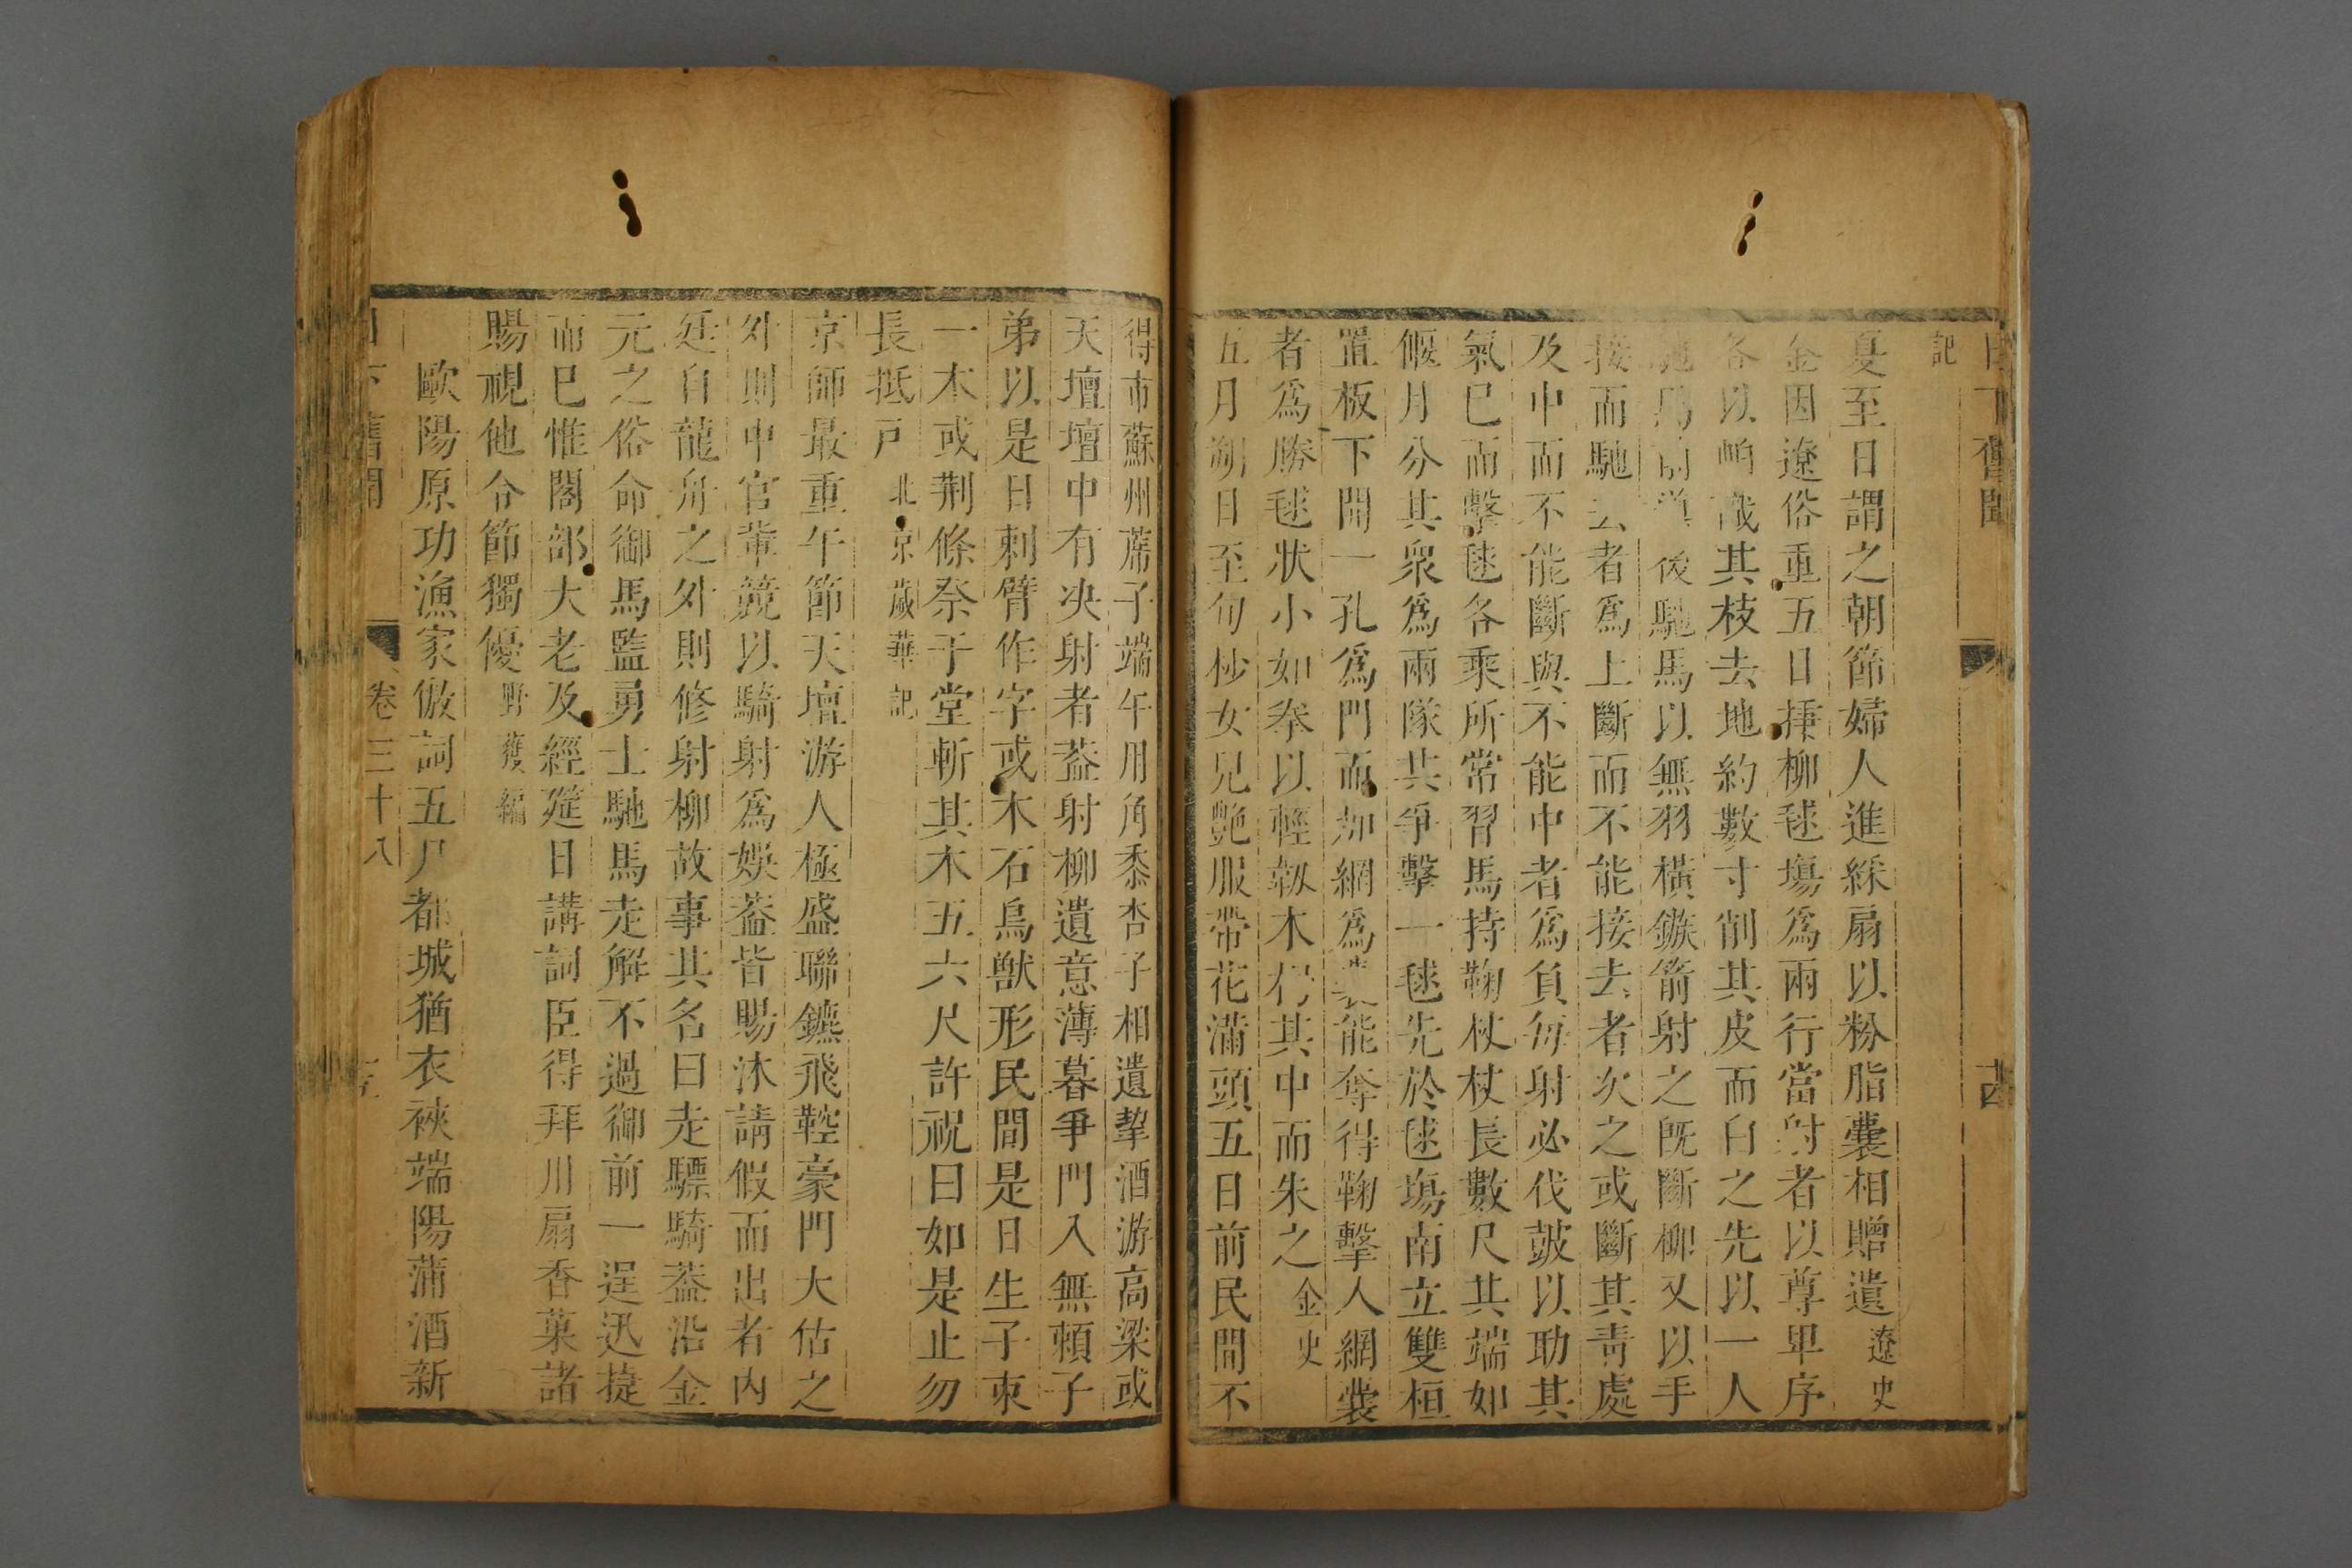 日下舊聞 十四
記
夏至日謂之朝節婦人進綵扇以粉脂囊相贈遺遼史
金因遼俗重五日插柳毬塲爲兩行當射者以尊卑序
各以帕識其枝去地約數寸削其皮而白之先以一人
馳馬前導後馳馬以無羽橫鏃箭射之旣斷柳又以手
接而馳去者爲上斷而不能接去者次之或斷其青處
及中而不能斷與不能中者爲負每射必伐鼓以助其
氣已而擊毬各乘所常習馬持鞠杖杖長數尺其端如
偃月分其衆爲兩隊共爭擊一毬先於毬塲南立雙桓
置板下開一孔爲門而加網爲囊能奪得鞠擊人網囊
者爲勝毬狀小如拳以輕韌木枵其中而朱之金史
五月朔日至旬杪女兒艷服帶花滿頭五日前民間不
得市蘇州蓆子端午用角黍杏子相遺挈酒游高梁或
天壇壇中有决射者葢射柳遺意薄暮爭門入無賴子
弟以是日刺臂作字或木石鳥獸形民間是日生子束
一木或荆條祭于堂斬其木五六尺許祝曰如是止勿
長抵戸北京歲華記
京師最重午節天壇游人極盛聯鑣飛鞚豪門大估之
外則中官輩競以騎射爲娛葢皆賜沐請假而出者內
廷自龍舟之外則修射柳故事其名曰走驃騎葢沿金
元之俗命御馬監勇士馳馬走解不過御前一逞迅捷
而已惟閣部大老及經筵日講詞臣得拜川扇香菓諸
賜視他令節獨優野獲編
歐陽原功漁家傲詞五月都城猶衣裌端陽蒲酒新
日下舊聞 卷三十八